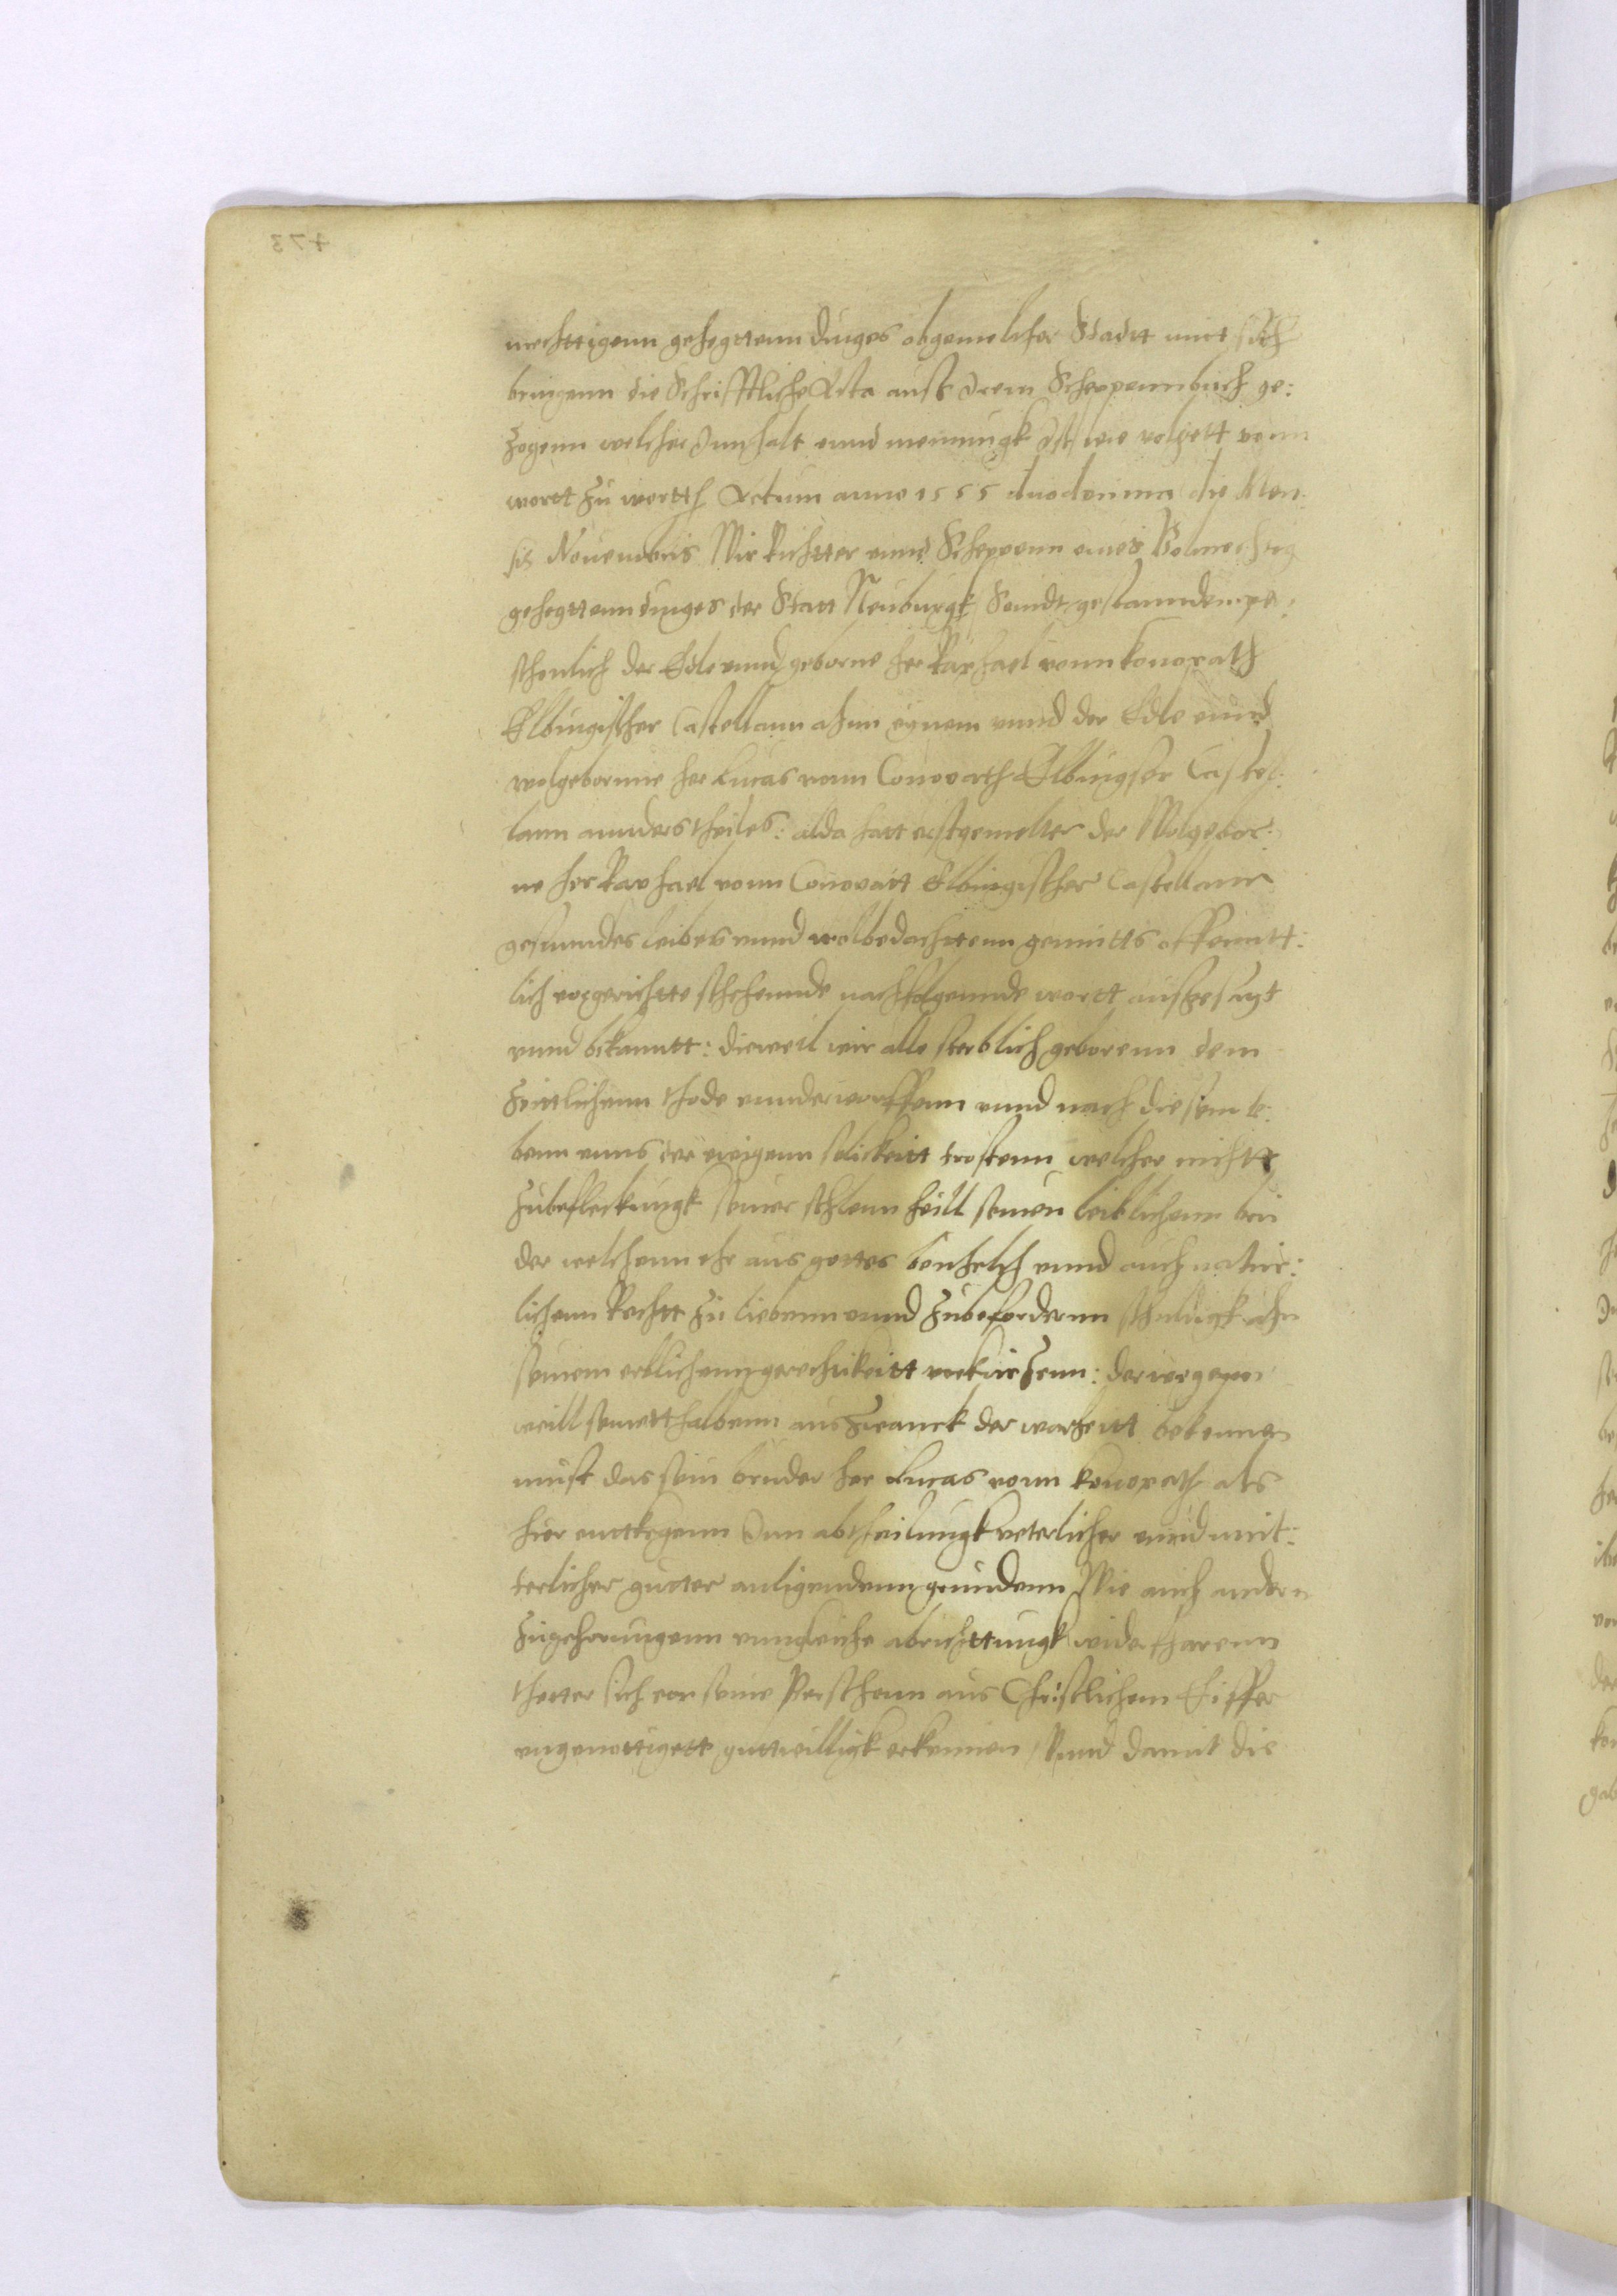 mechttigenn gehegttenn dinges obgemelther Stadtt mit sich
bringenn die Schrifftliche Acta auß dem Scheppennbuch ge:
zogenn welcher Innhalt vnnd meinungk ist wie volgett vonn
wortt zu wortth Actum anno 1555 duodecima die Men
sis Nouembris Wir Richtter vnnd Scheppenn eines Volmechtig
gehegttenn dinges der Statt Neuburgk Seindt gestanndenn per
schonlich der Edle vnnd geborne her Raphael vonn konopath
Elbingischer Castellann ahnn eynem vnnd der Edle vnnd
wolgebornne her Lucas vonn Conopath Elbingscher Castel
lann annders theiles: alda hatt erstgemelter der Wolgebor
ne her Raphael vonn Conopatt Elbingischer Castellann
gesunndes leibes vnnd wolbedachttenn gemutts offenntt:
lich vorgerichtte sthehennde nachfolgennde wortt ausgesagt
vnnd bekanntt: dieweil wir alle sterblich geborenn dem
Zeittlichenn thode vnnderworffenn vnnd nach diesem le
benn vnns der ewigenn selickeitt trostenn welcher nichtt
zubefleckungk seiner sehlenn heill seinen leiblichenn bru
der welchenn ehr aus gottes beuhelch vnnd auch natur:
lichenn Rechtt zu liebenn vnnd zubefordernn schuldigk ahn
seinem erblichenn gerechtikeitt vorkurzenn: derwegenn
weill seinetthalbenn aus zwanck der warheitt bekennen
must das sein bruder her Lucas vonn konopath als
hier entkegenn Inn abtheilungk veterlicher vnnd mut:
terlicher gutter anligendenn grundenn Wie auch andern
zugehorungenn vnngleiche abrichttungk widerfharenn
thette sich vor seine Persthonn aus Christlichem Eiffer
vngenottigett guttwilligk erkennen, Vnnd damit die